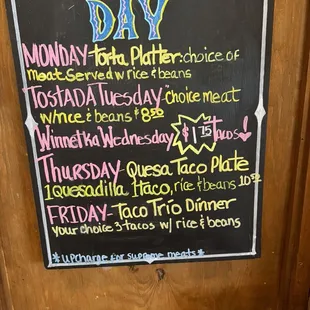 DAY
MONDAY-Torta Platter: choice of
meat. Served w/rice & beans
TOSTADA Tuesday-Choice meat
w/rice & beans $8.50
Winnetka Wednesday $1.75 Tacos!
THURSDAY-Quesa Taco Plate
1 Quesadilla 1 taco, rice & beans 10.50
FRIDAY-Taco Trio Dinner
your choice 3-tacos w/ rice & beans
*upcharge for supreme meats*